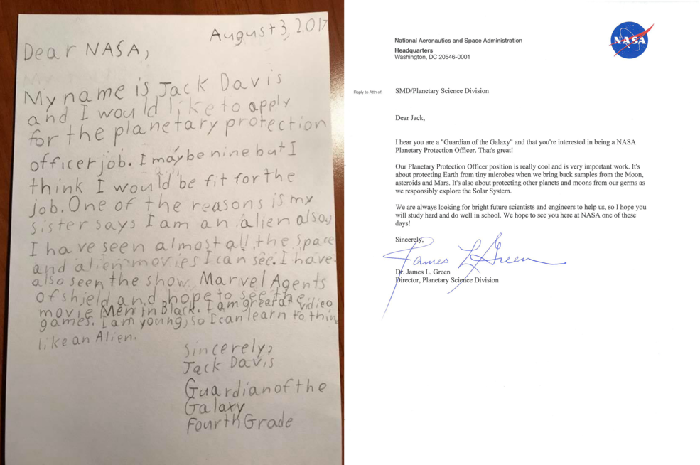 August 3, 2017
Dear NASA,
My name is Jack Davis
and I would like to apply
for the planetary protection
officer job. I may be nine but I
think I would be fit for the
job. One of the reasons is my
sister says I am an alien also
I have seen almost all the space
and alien movies I can see. I have
also seen the show Marvel Agents
of shield and hope to see the
movie Men in Black. I am great at vidieo
games. I am young, so I can learn to think
like an Alien.
Sincerely,
Jack Davis
Guardian of the
Galaxy
Fourth Grade
National Aeronautics and Space Administration
Headquarters
Washington, DC 20546-0001
NASA
Reply to Attn of:
SMD/Planetary Science Division
Dear Jack,
I hear you are a "Guardian of the Galaxy" and that you're interested in being a NASA
Planetary Protection Officer. That's great!
Our Planetary Protection Officer position is really cool and is very important work. It's
about protecting Earth from tiny microbes when we bring back samples from the Moon,
asteroids and Mars. It's also about protecting other planets and moons from our germs as
we responsibly explore the Solar System.
We are always looking for bright future scientists and engineers to help us, so I hope you
will study hard and do well in school. We hope to see you here at NASA one of these
days!
Sincerely,
James L Green
Dr. James L. Green
Director, Planetary Science Division